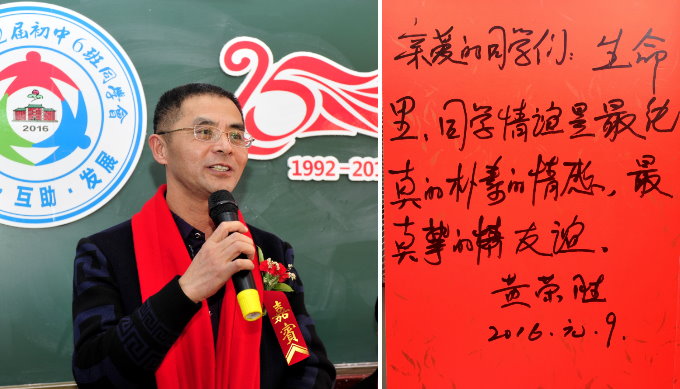 届初中6班同学会
2016
·互助·发展
25
1992-201
嘉賓
亲爱的同学们：生命
里，同学情谊是最纯
真的朴素的情感，最
真挚的情友谊。
黄荣胜
2016.元.9.